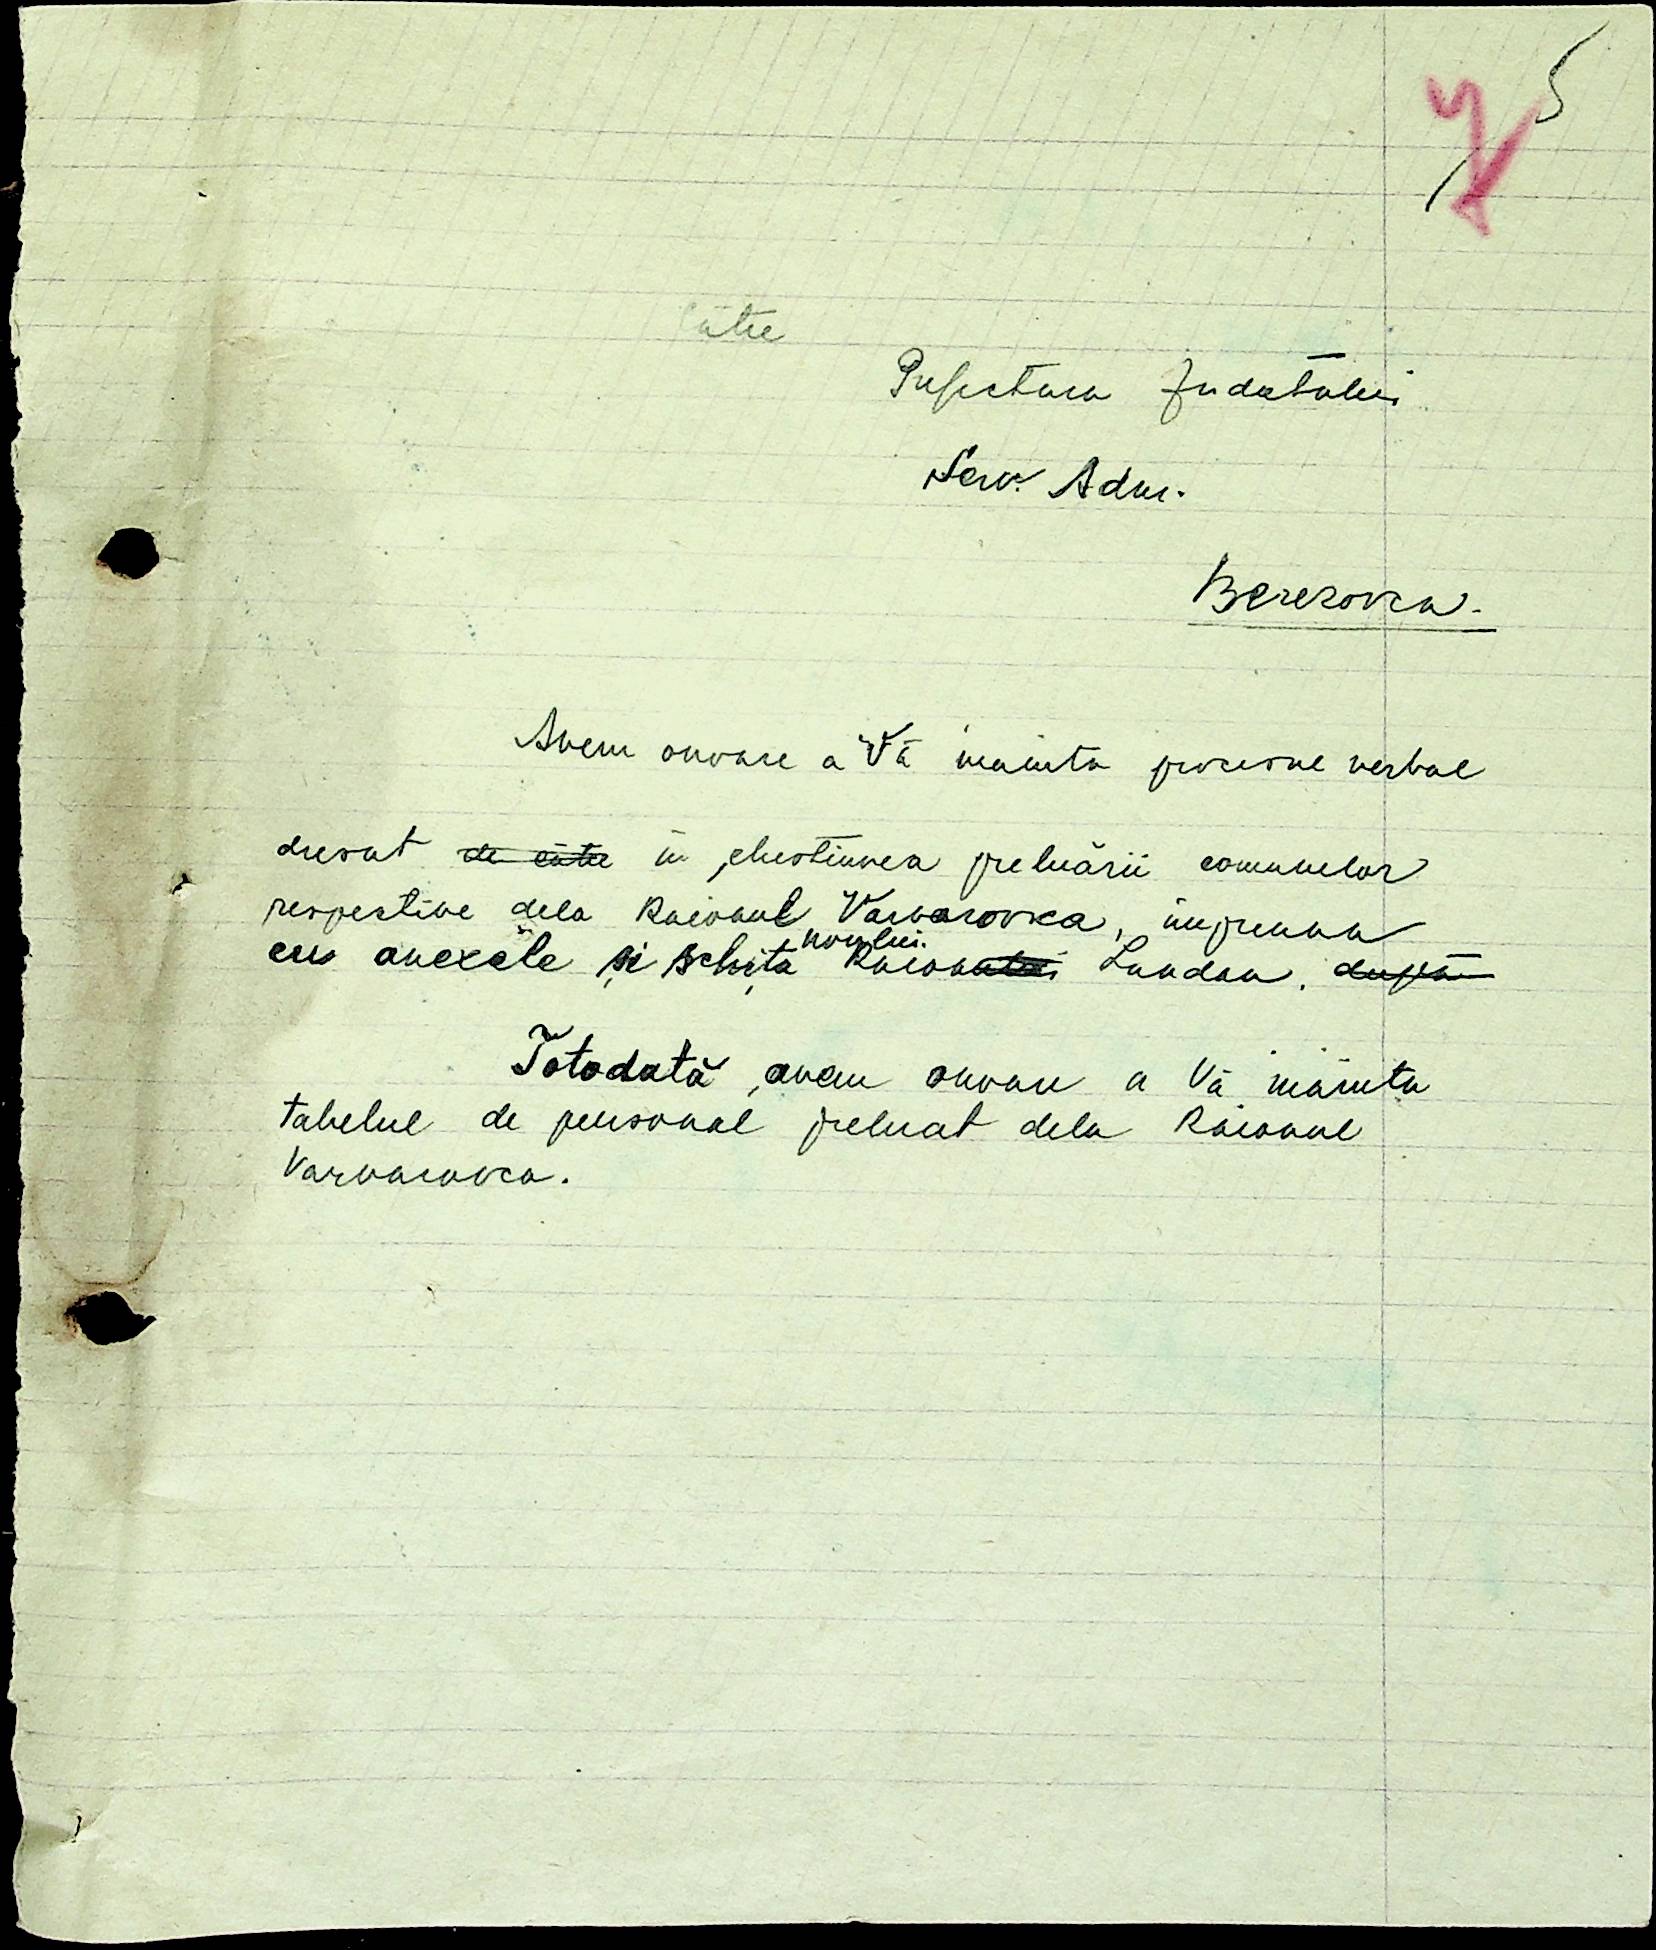 5
către
Prefectura Județului
Serv. Adm.
Berezovca.
Avem onoare a Vă inainta procesul verbal
dresat de către în chestiunea preluării comunelor
respective dela Raionul Varvarovca, impreuna
cu anexele și schița noului Raionului Landau. după
Totodată, avem onoare a Vă inăinta
tabelul de personal preluat dela Raionul
Varvarovca.